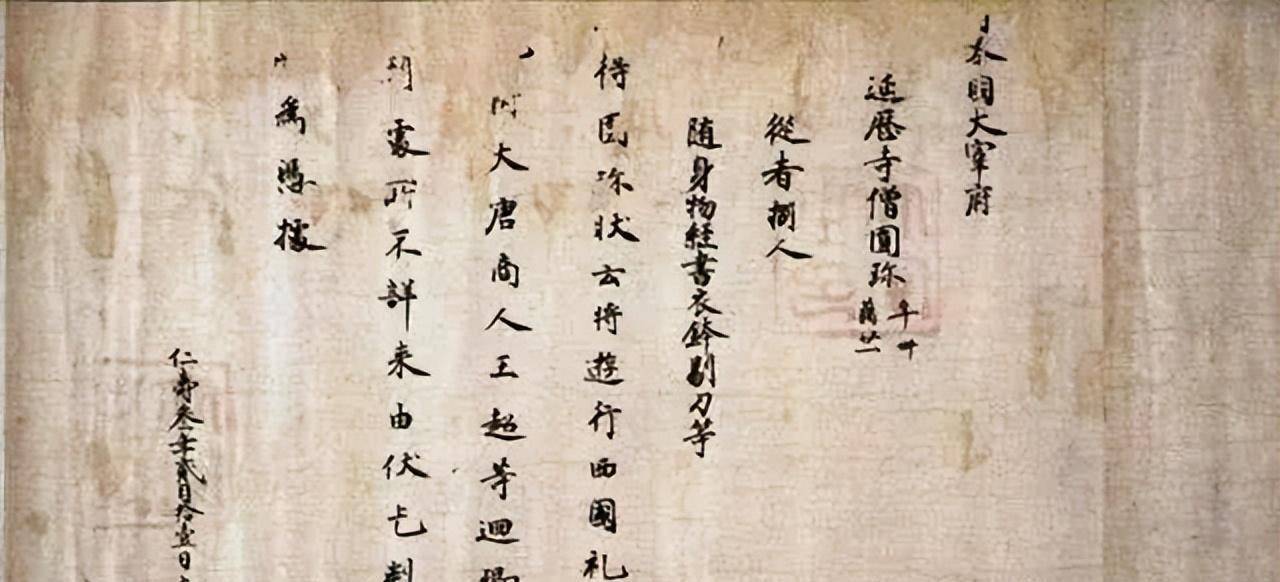 日本國大宰府
延曆寺僧圓珎 年卌
臈廿一
從者捌人
随身物経書衣鉢剔刀等
得圓珎状云将遊行西國礼
大唐商人王超等迴
處所不詳来由伏乞判
為憑據
仁壽叁年貳月拾壹日